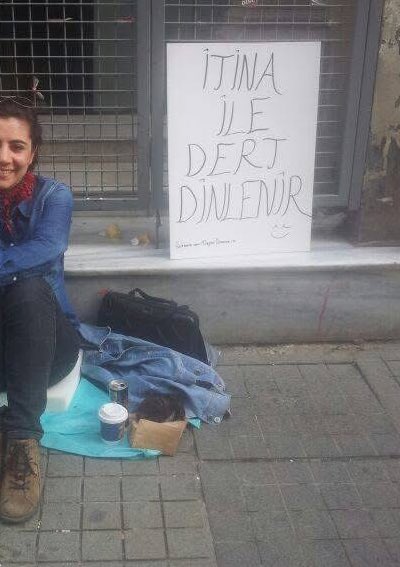 İTİNA
İLE
DERT
DİNLENİR